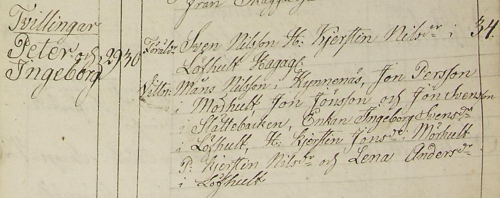 från Skagg
Tvillingar
Peter och
Ingeborg
29 30
Föräldr: Sven Nilsson H: Kjersten Nilsdr i
Löfhult Skapgl.
34.
Vittn: Måns Nilsson i Kynnenäs, Jon Persson
i Mörhult Jon Jönsson och Jon Svensson
i Slättebacken, Enkan Ingeborg Svensdr
i Löfhult, H: Kjersten Jonsdr i Mörhult
P: Kjerstin Nilsdr och Lena Andersdr
i Löfhult